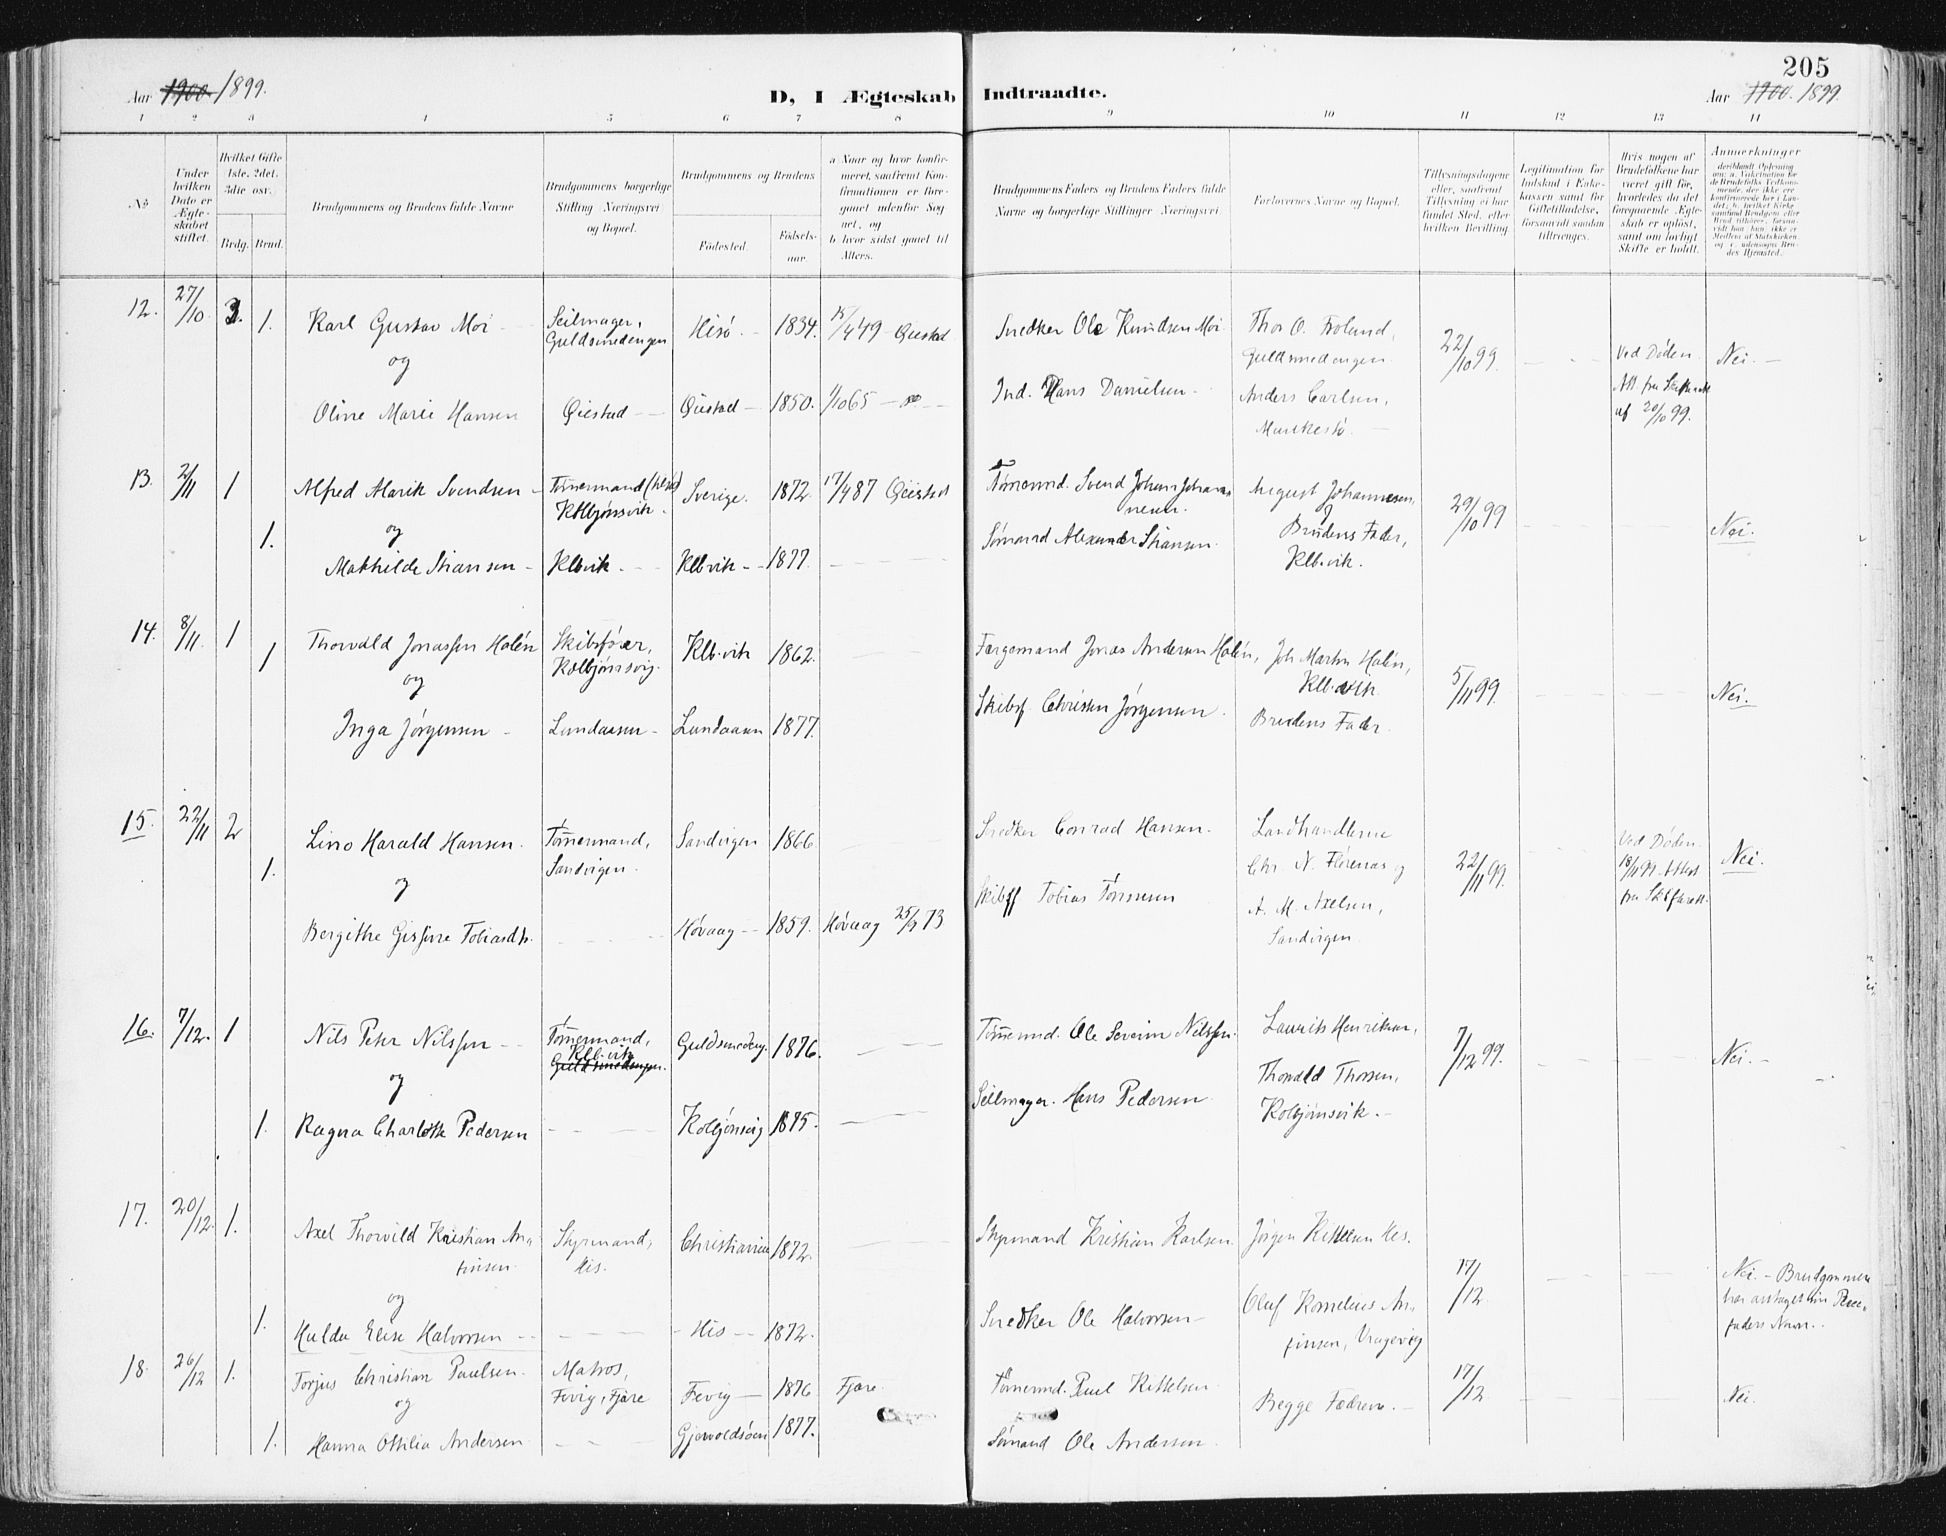 205
Aar 1900. 1899.
D, I Ægteskab Indtraadte.
Aar 1900. 1899.
1 2 3 4 5 6 7 8 9 10 11 12 13 14
No
Under hvilken Dato er Ægteskabet stiftet.
Hvilket Gifte 1ste, 2det, 3die osv.
Brdg. Brud.
Brudgommens og Brudens fulde Navne
Brudgommens borgerlige Stilling Næringsvei og Bopæl.
Brudgommens og Brudens
Fødested.
Fødselsaar.
a Naar og hvor konfirmeret, saafremt Konfirmationen er foregaaet udenfor Sognet, og
b hvor sidst gaaet til Alters.
Brudgommens Faders og Brudens Faders fulde Navne og borgerlige Stillinger Næringsvei
Forlovernes Navne og Bopæl.
Tillysningsdagene eller, saafremt Tillysning ei har fundet Sted, efter hvilken Bevilling.
Legitimation for Indskud i Enkekassen samt for Giftetilladelse, forsaavidt saadan tiltrænges.
Hvis nogen af Brudefolkene har været gift før, hvorledes da det foregaaende Ægteskab er opløst, samt om lovligt Skifte er holdt.
Anmerkninger
12. 27/10 3. 1. Karl Gustav Moi
Seilmager, Guldsmedengen
Hisø. 1834. 15/4 49 Øiestad
Snedker Ole Knudsen Moi
Thor O. Froland, Guldsmedengen
22/10 99
Ved Døden. Att. fra Skifteret af 20/10 99.
Nei.
og
Oline Marie Hansen
Øiestad Øiestad 1850. 1/10 65
Ind. Hans Danielsen
Anders Carlsen,
13. 2/11 1 Alfred Alarik Svendsen
Tømermand Kolbjønsvik.
Sverige. 1872. 17/4 87 Øiestad
Tømermd. Svend Johan
August Johannesen,
29/10 99
Nei.
og
1. Mathilde
Klbvik Klbvik 1877.
Sømand Alexander
Brudens Fader, Klb.vik.
14. 8/11 1 Thorvald Jonassen Holén
Skibsfører, Kolbjønssvig.
Klb.vik 1862.
Færgemand Jonas Andersen Holén,
Joh Martin Holén, Klb.vik
5/11 99.
Nei.
og
1 Inga Jørgensen
Lundaasen Lundaasen 1877.
Skibsf Christen Jørgensen
Brudens Fader.
15. 22/11 2 Lino Harald Hansen.
Tømermand, Sandvigen.
Sandvigen 1866
Snedker Conrad Hansen.
Landhandlerne Chr. N. Flørenæs og A. M. Axelsen, Sandvigen
22/11 99.
Ved Døden. 18/11 99. Attest fra Skifteret.
Nei.
og
1. Bergithe Tobiasdtr.
Høvaag 1859. Høvaag 73
Skibsf Tobias Tønnesen
16. 7/12. 1 Nils Peter Nilssen
Tømermand, Klb.vik Guldsmedengen.
Guldsmedeng. 1876.
Tømermd. Ole Severin Nilssen.
Laurits Henriksen,
7/12 99.
Nei.
og
1. Ragna Charlotte Pedersen
Kolbjønsvig 1875.
Seilmager. Hans Pedersen
Thorvald Thorsen, Kolbjønsvik.
17. 20/12. 1. Axel Thorvild Kristian Arntinsen
Styrmand, His.
Christiania 1872.
Styrmand Kristian Karlsen
Jørgen Kittelsen His.
17/12.
Nei. Brudgommen har antaget sin faders Navn.
og
1. Hulda Elise Halvorsen
His 1872.
Snedker Ole Halvorsen
Oluf Kornelius
18. 26/12 1. Torjus Christian Paulsen.
Matros, Fevig, Fjære
Fevig 1876 Fjære.
Tømermd. Paul Kittelsen
Begge Fædrene.
17/12
Nei.
og
1. Hanna Ottilia Andersen
Gjervoldsøen 1877.
Sømand Ole Andersen